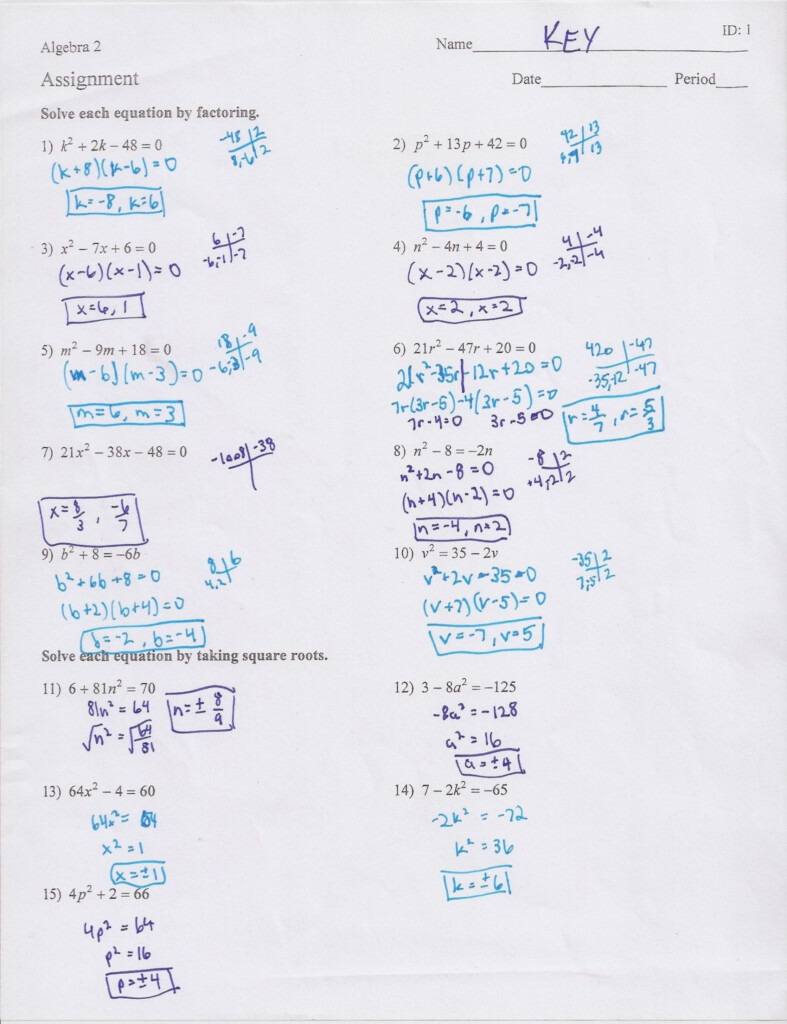 ID: 1
Algebra 2
Name KEY
Assignment
Date Period
Solve each equation by factoring.
1) k² + 2k − 48 = 0
-48 | 2
8,-6 | 2
(k+8)(k-6)=0
k=-8, k=6
2) p² + 13p + 42 = 0
42 | 13
6,7 | 13
(p+6)(p+7)=0
p=-6, p=-7
3) x² − 7x + 6 = 0
6 | -7
-6,-1 | -7
(x-6)(x-1)=0
x=6, 1
4) n² − 4n + 4 = 0
4 | -4
-2,-2 | -4
(x-2)(x-2)=0
x=2, x=2
5) m² − 9m + 18 = 0
18 | -9
-6,3 | -9
(m-6)(m-3)=0
m=6, m=3
6) 21r² − 47r + 20 = 0
420 | -47
-35,-12 | -47
21r²-35r-12r+20=0
7r(3r-5)-4(3r-5)=0
7r-4=0 3r-5=0
r=4/7, r=5/3
7) 21x² − 38x − 48 = 0
-1008 | -38
x=8/3, -6/7
8) n² − 8 = −2n
-8 | 2
+4,-2 | 2
n²+2n-8=0
(n+4)(n-2)=0
n=-4, n=2
9) b² + 8 = −6b
8 | 6
4,2
b²+6b+8=0
(b+2)(b+4)=0
b=-2, b=-4
10) v² = 35 − 2v
-35 | 2
7,-5 | 2
v²+2v-35=0
(v+7)(v-5)=0
v=-7, v=5
Solve each equation by taking square roots.
11) 6 + 81n² = 70
81n² = 64
√n² = √64/81
n=± 8/9
12) 3 − 8a² = −125
-8a² = -128
a² = 16
a=±4
13) 64x² − 4 = 60
64x² = 64
x² = 1
x=±1
14) 7 − 2k² = −65
-2k² = -72
k² = 36
k=±6
15) 4p² + 2 = 66
4p² = 64
p² = 16
p=±4